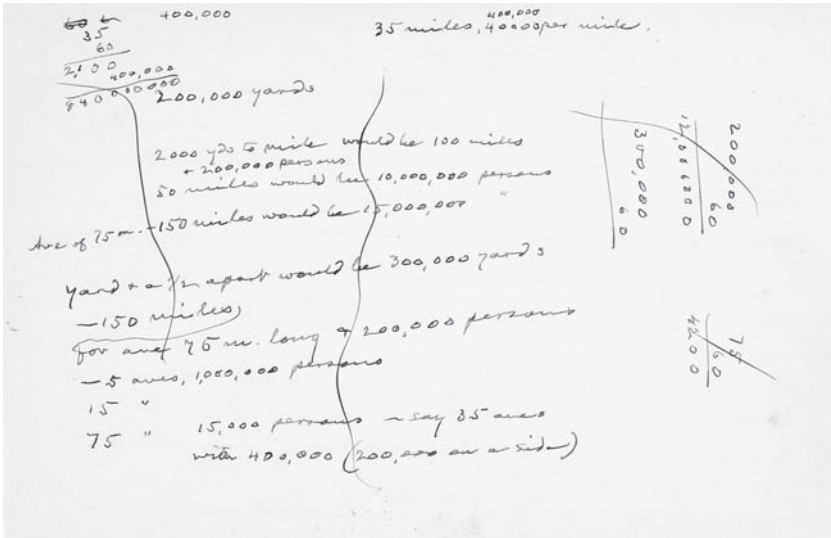 400,000
35
60
2,100
400,000
840000000
400,000
35 miles, 40000 per mile.
200,000 yards
2000 yds to mile would be 100 miles
+ 200,000 persons
50 miles would be 10,000,000 persons
Ave of 75 m. - 150 miles would be 15,000,000 "
Yard & a 1/2 apart would be 300,000 yards
- 150 miles,
for ave 75 m. long & 200,000 persons
- 5 aves, 1,000,000 persons
15 "
75 " 15,000 persons - say 35 aves
with 400,000 (200,000 on a side)
200,000
60
300,000
60
75
60
4200